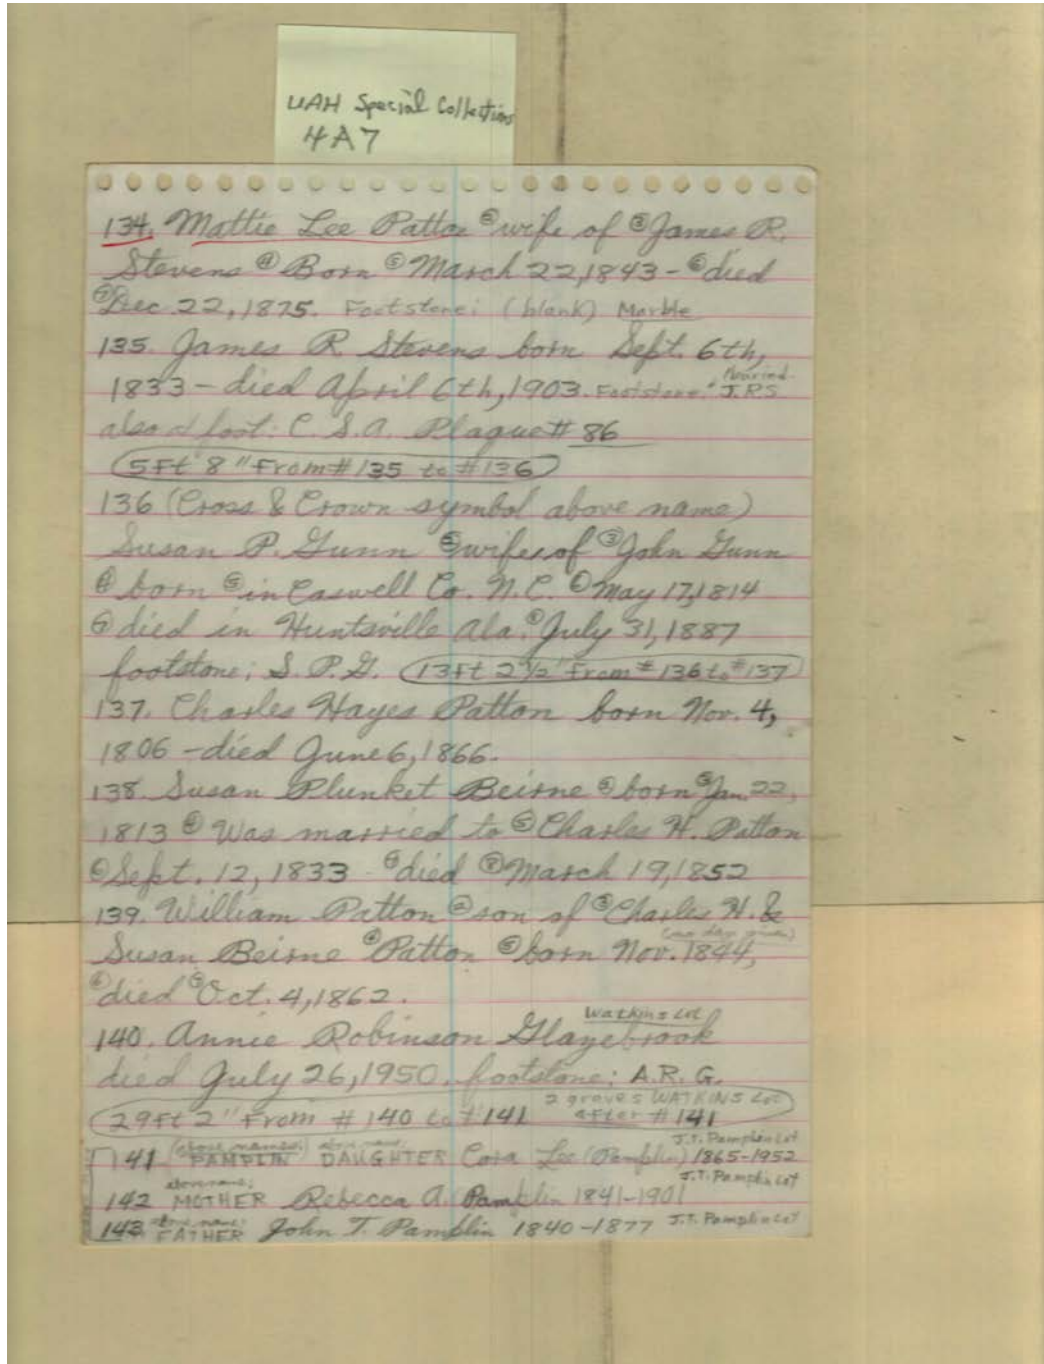 UAH Special Collections
4A7
134. Mattie Lee Patton ② wife of ③ James R.
Stevens ④ Born ⑤ March 22, 1843 - ⑥ died
⑦ Dec. 22, 1875. Footstone: (blank) Marble
135. James R Stevens born Sept. 6th,
1833 - died April 6th, 1903. Footstone: J.R.S
also at foot: C.S.A. Plaque # 86
5Ft 8" From # 135 to #136
136 (Cross & Crown symbol above name)
Susan P. Gunn ② wife of ③ John Gunn
④ born ⑤ in Caswell Co. N.C. ⑥ May 17, 1814
⑦ died in Huntsville Ala. ⑧ July 31, 1887
footstone: S.P.G. 13Ft 2 1/2" From # 136 to #137
137. Charles Hayes Patton born Nov. 4,
1806 - died June 6, 1866.
138. Susan Plunket Beirne ② born ③ Jan. 22,
1813 ④ Was married to ⑤ Charles H. Patton
⑥ Sept. 12, 1833 - ⑦ died ⑧ March 19, 1852
139. William Patton ② son of ③ Charles H. &
(no day given)
Susan Beirne ④ Patton ⑤ born Nov. 1844,
⑥ died ⑦ Oct. 4, 1862.
Watkins Lot
140. Annie Robinson Glazebrook
died July 26, 1950. footstone: A.R.G.
29Ft 2" From # 140 to #141 2 graves WATKINS Lot after # 141
J.T. Pamplin Lot
141 (above names:) PAMPLIN above name: DAUGHTER Cora Lee (Pamplin) 1865-1952
above name: J.T. Pamplin Lot
142 MOTHER Rebecca A. Pamplin 1841-1901
143 above name: FATHER John T. Pamplin 1840-1877 J.T. Pamplin Lot